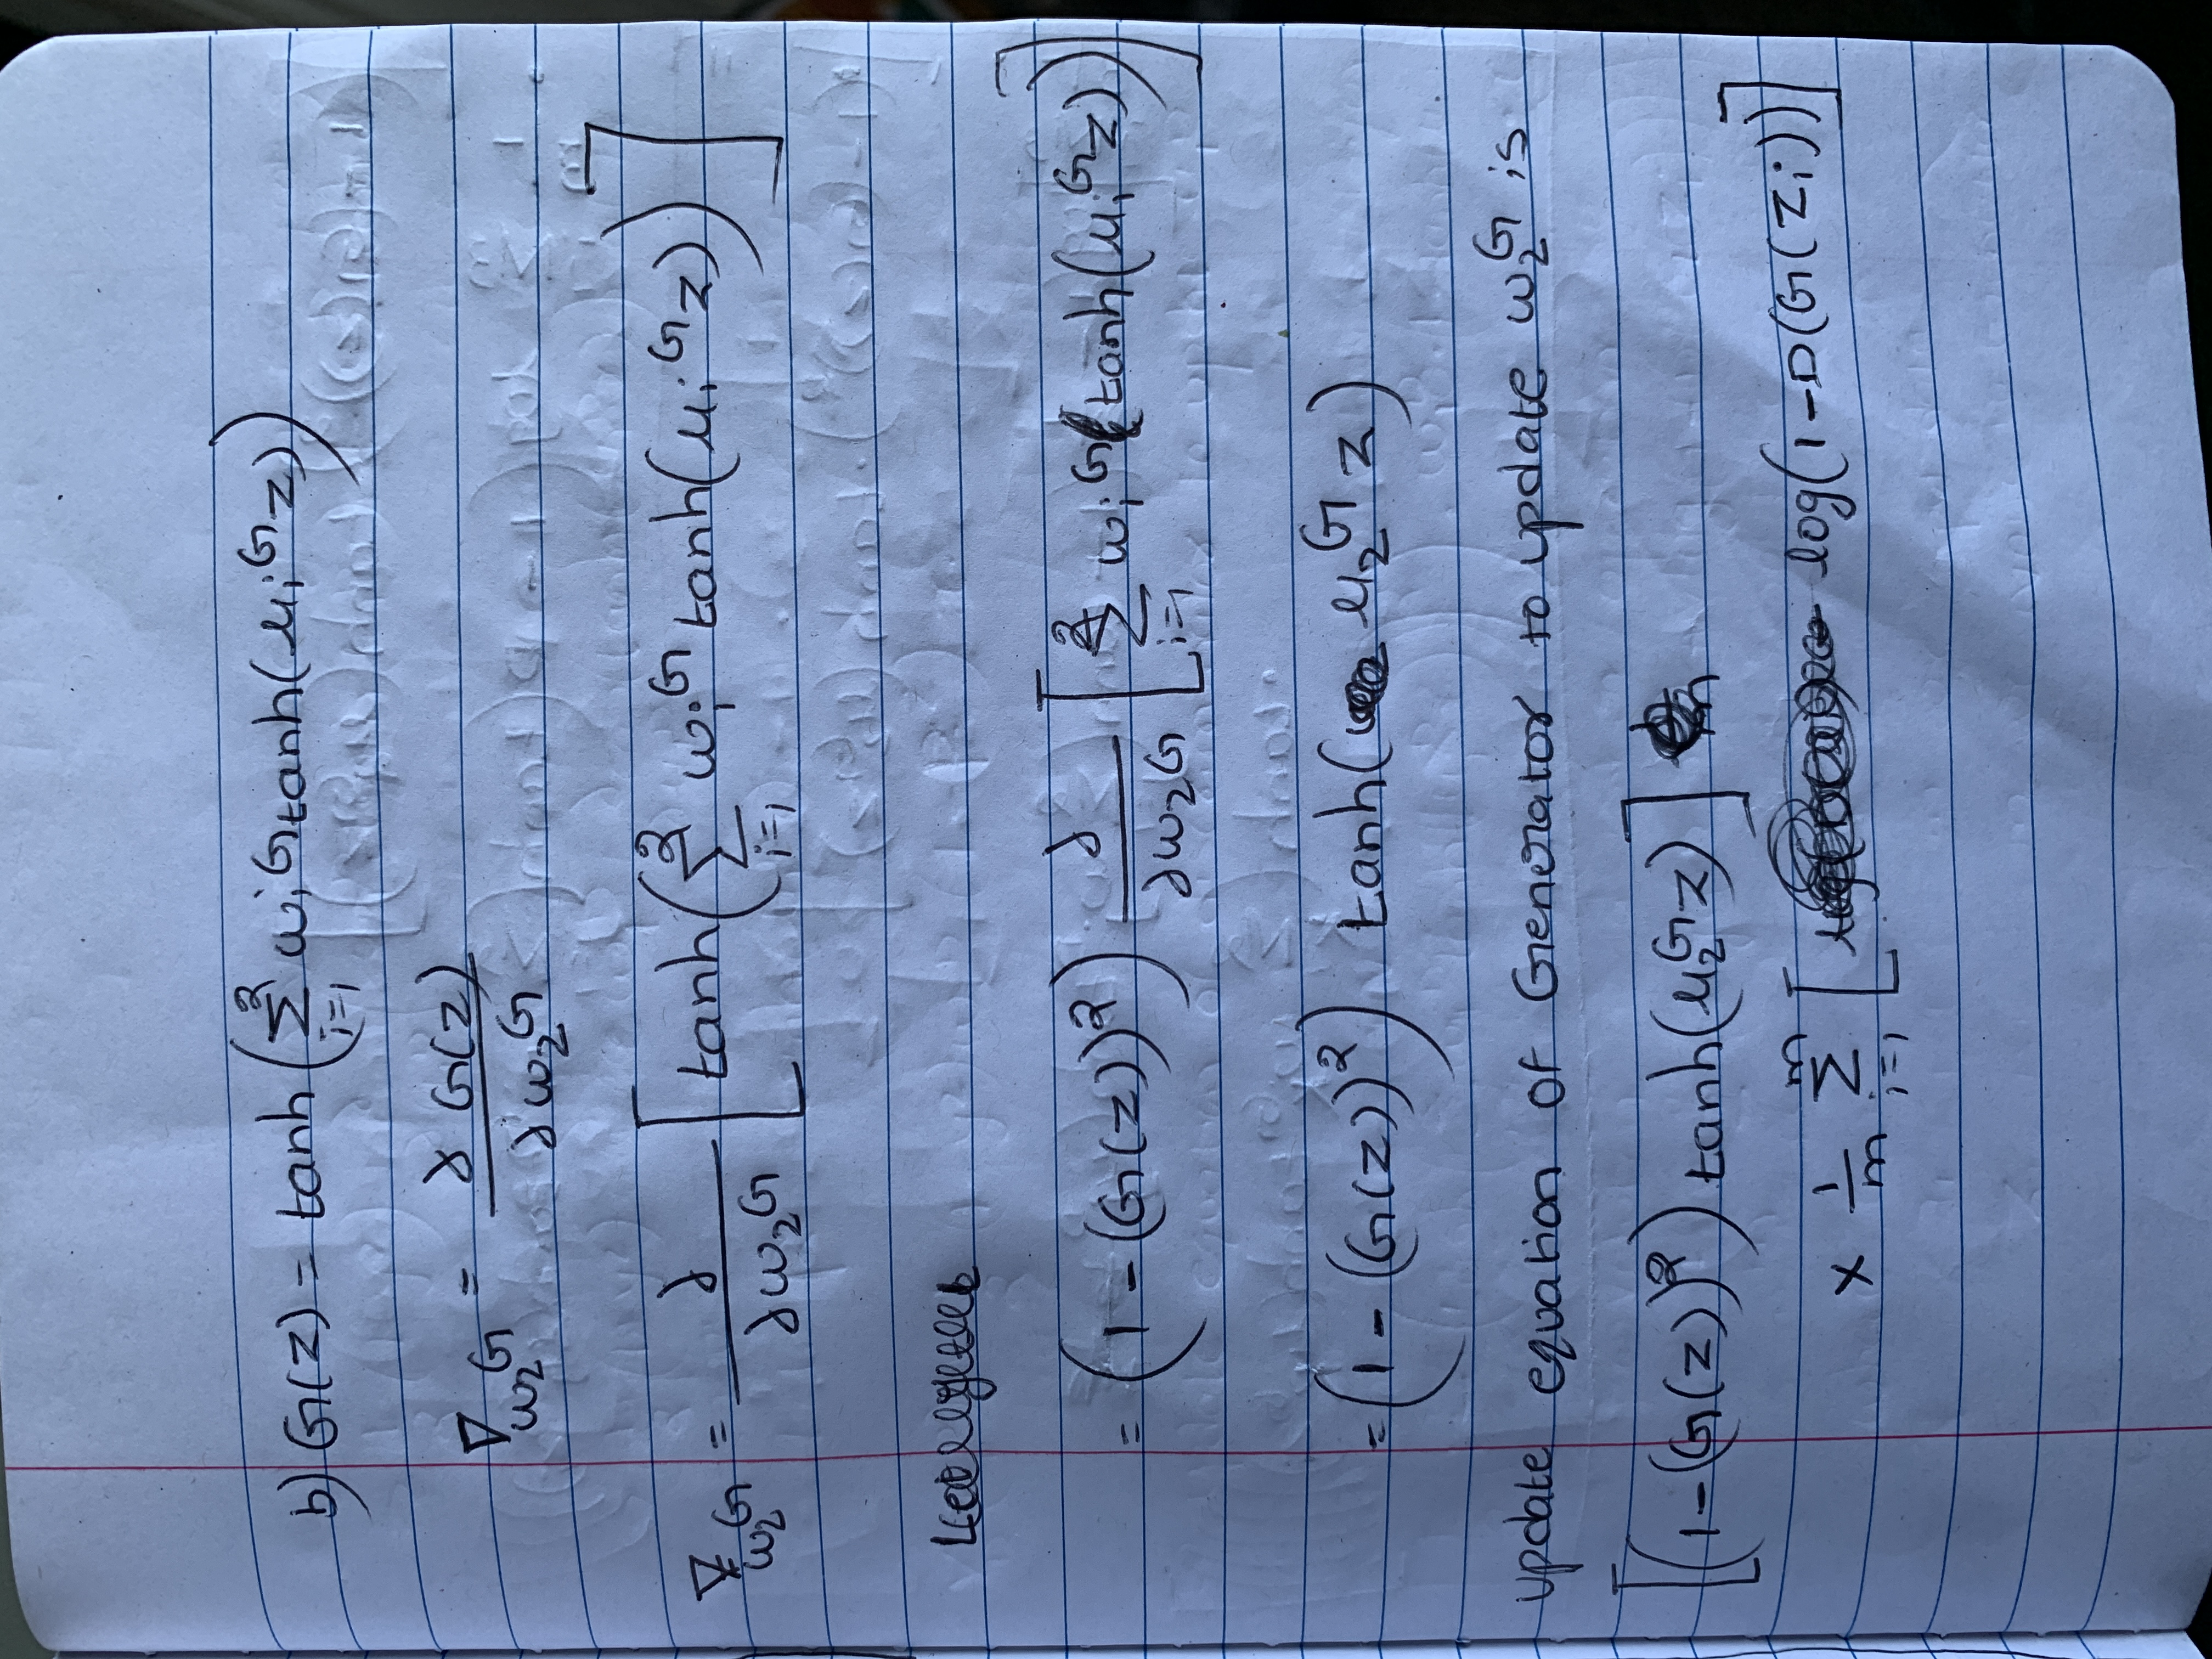 b) G(z) = tanh(∑_{i=1}^{2} w_i^G tanh(u_i^G z))
∇_{w_2^G} = ∂ G(z) / ∂w_2^G
∇_{w_2^G} = ∂ / ∂w_2^G [tanh(∑_{i=1}^{2} w_i^G tanh(u_i^G z))]
= (1 - (G(z))^2) ∂ / ∂w_2^G [∑_{i=1}^{2} w_i^G tanh(u_i^G z))]
= (1 - (G(z))^2) tanh(u_2^G z)
update equation of Generator to update w_2^G is
[(1 - (G(z))^2) tanh(u_2^G z)]
× 1/m ∑_{i=1}^{m} [log(1 - D(G(z_i))]